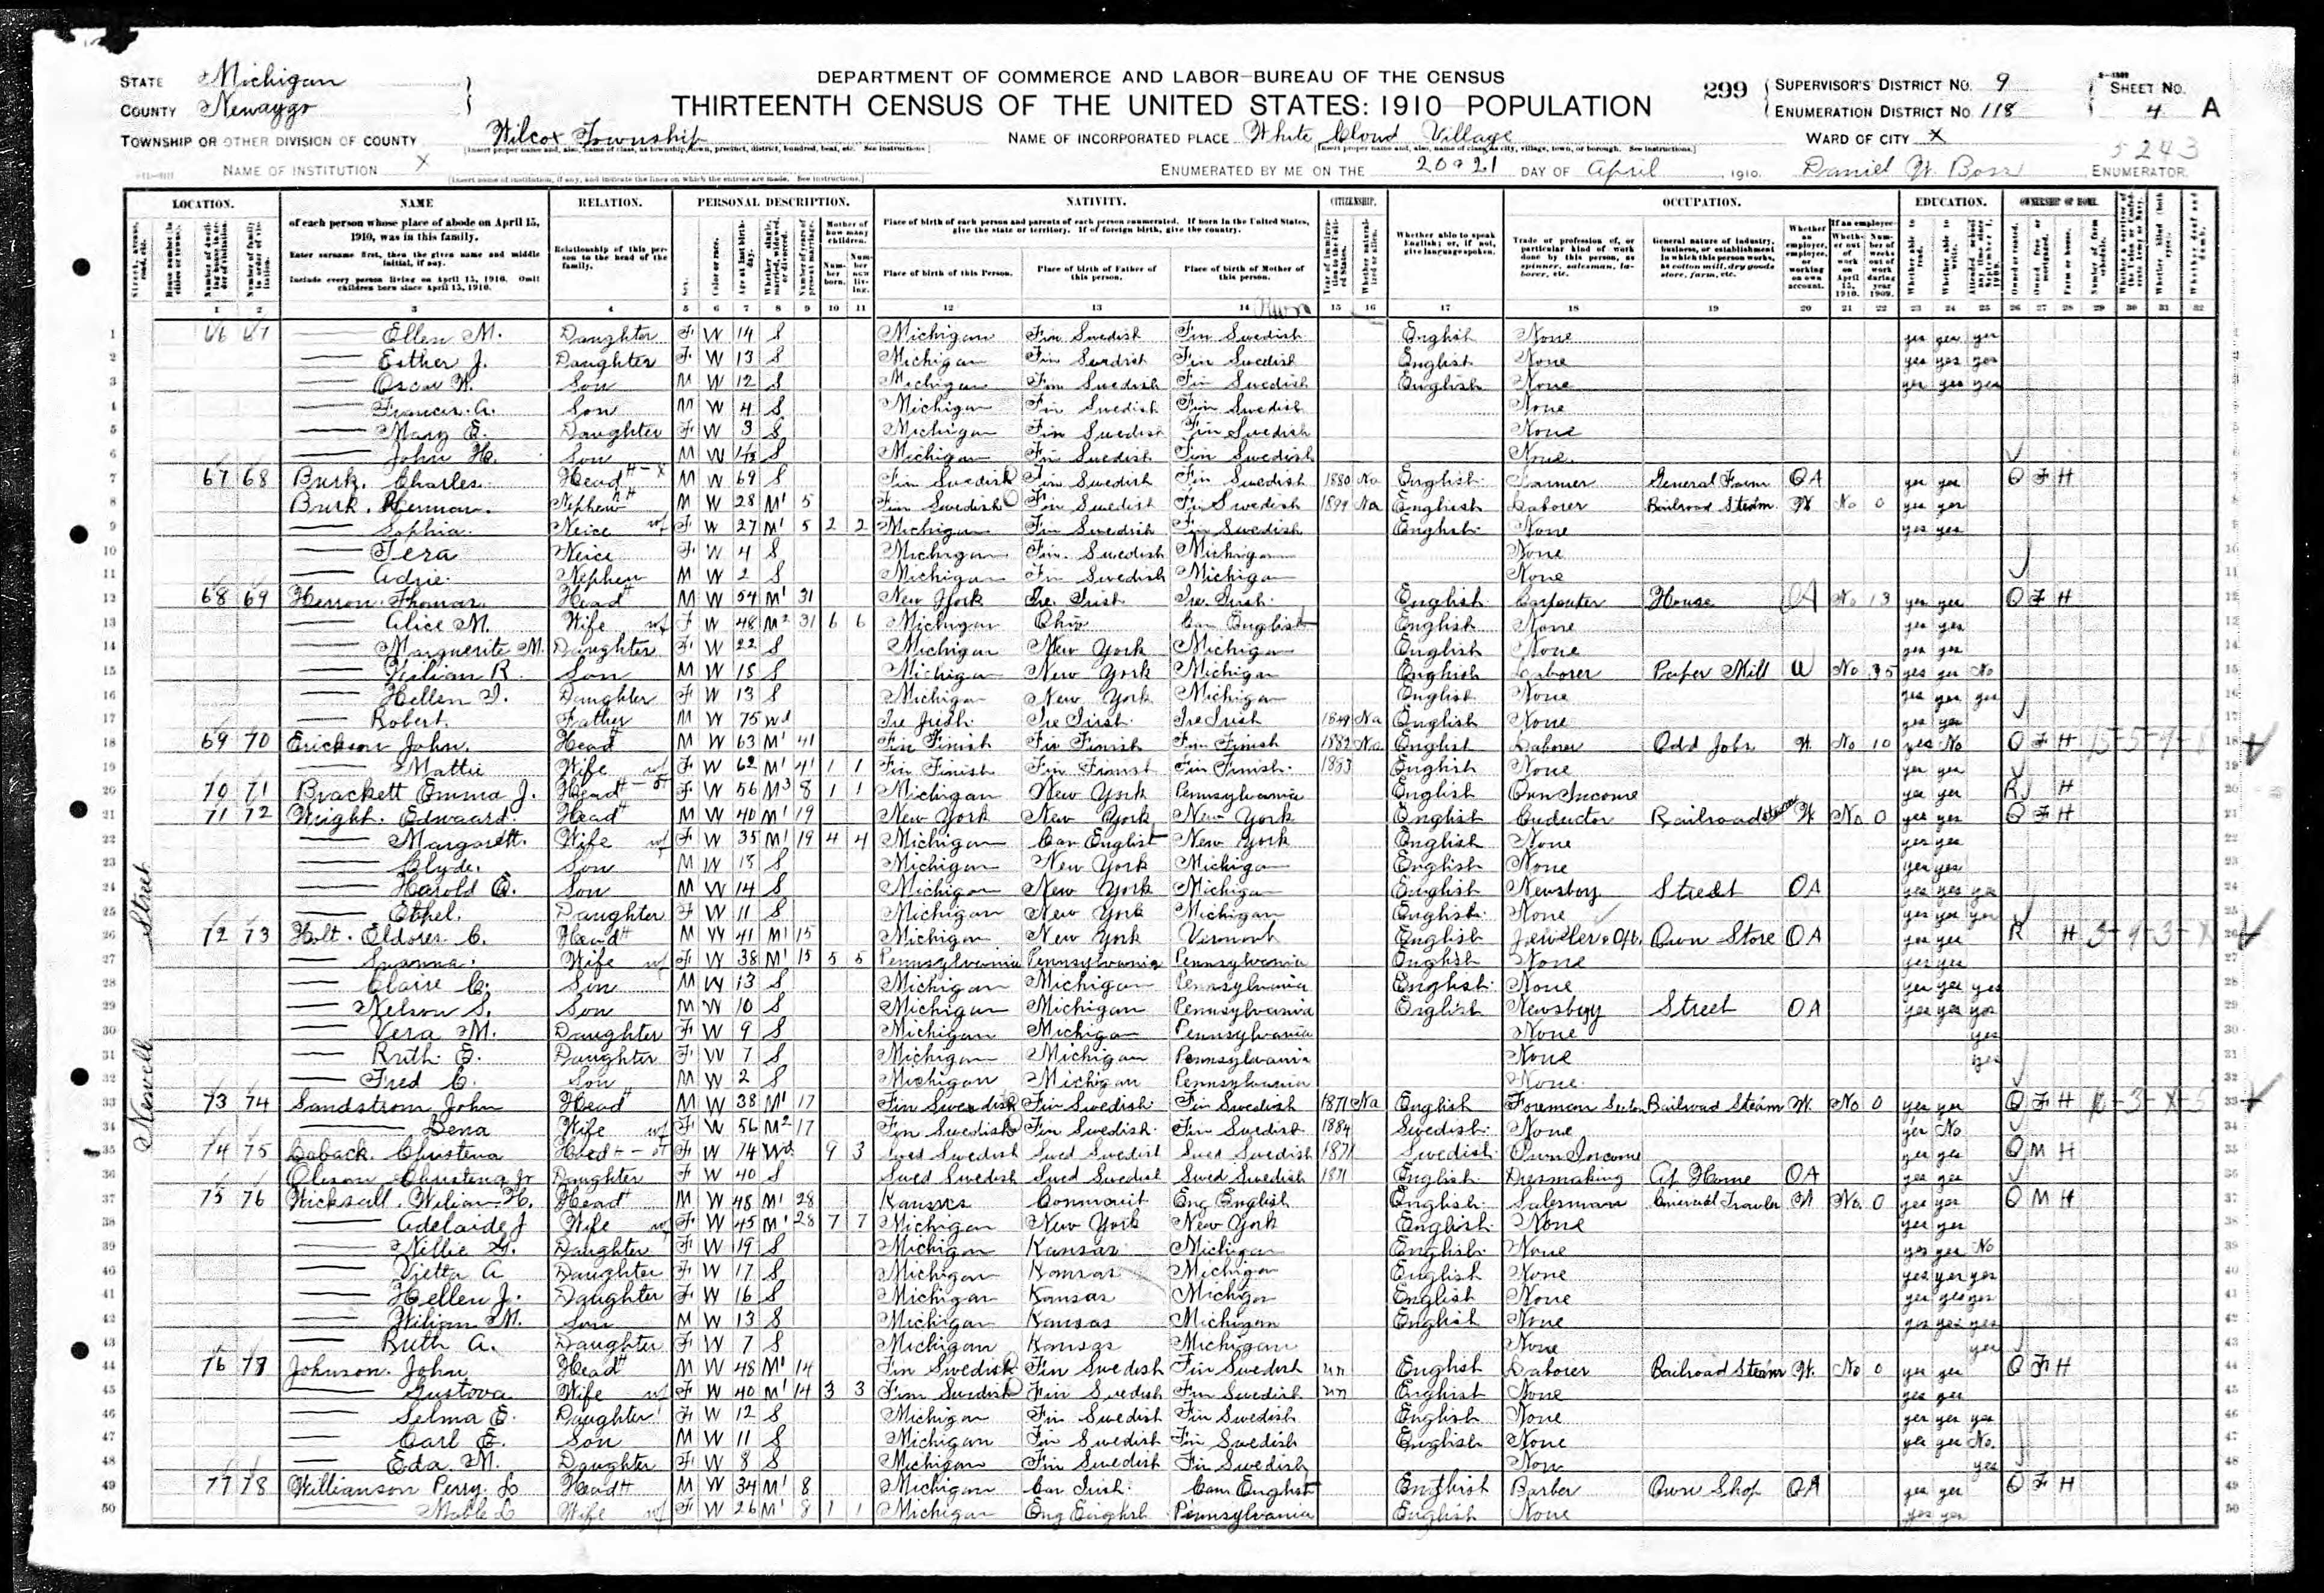 STATE Michigan
COUNTY Newaygo
TOWNSHIP OR OTHER DIVISION OF COUNTY Wilcox Township
NAME OF INSTITUTION X
DEPARTMENT OF COMMERCE AND LABOR—BUREAU OF THE CENSUS
THIRTEENTH CENSUS OF THE UNITED STATES: 1910 POPULATION
NAME OF INCORPORATED PLACE White Cloud Village
ENUMERATED BY ME ON THE 20 & 21 DAY OF April, 1910. Daniel W. ENUMERATOR
299 SUPERVISOR'S DISTRICT NO. 9 SHEET NO.
ENUMERATION DISTRICT NO. 118 4 A
WARD OF CITY X
5243
LOCATION. NAME RELATION. PERSONAL DESCRIPTION. NATIVITY. CITIZENSHIP. OCCUPATION. EDUCATION. OWNERSHIP OF HOME.
of each person whose place of abode on April 15, 1910, was in this family.
Enter surname first, then the given name and middle initial, if any.
Include every person living on April 15, 1910. Omit children born since April 15, 1910.
Relationship of this person to the head of the family.
Place of birth of each person and parents of each person enumerated. If born in the United States, give the state or territory. If of foreign birth, give the country.
Place of birth of this Person. Place of birth of Father of this person. Place of birth of Mother of this person.
Whether able to speak English; or, if not, give language spoken.
Trade or profession of, or particular kind of work done by this person, as spinner, salesman, laborer, etc.
General nature of industry, business, or establishment in which this person works, as cotton mill, dry goods store, farm, etc.
1 2 3 4 5 6 7 8 9 10 11 12 13 14 15 16 17 18 19 20 21 22 23 24 25 26 27 28 29 30 31 32
Newell Street
1 66 67 Ellen M. Daughter F W 14 S Michigan Fin Swedish Fin Swedish English None yes yes yes
2 Esther J. Daughter F W 13 S Michigan Fin Swedish Fin Swedish English None yes yes yes
3 Oscar W. Son M W 12 S Michigan Fin Swedish Fin Swedish English None yes yes yes
4 Francis A. Son M W 4 S Michigan Fin Swedish Fin Swedish None
5 Mary E. Daughter F W 3 S Michigan Fin Swedish Fin Swedish None
6 John H. Son M W S Michigan Fin Swedish Fin Swedish None
7 67 68 Burk. Charles Head M W 69 S Fin Swedish Fin Swedish Fin Swedish 1880 Na English Farmer General Farm OA yes yes O F H
8 Burk. Herman. Nephew M W 28 M1 5 Fin Swedish Fin Swedish Fin Swedish 1899 Na English Laborer Railroad Steam W No 0 yes yes
9 Sophia Neice F W 27 M1 5 2 2 Michigan Fin Swedish Fin Swedish English None yes yes
10 Tera Neice F W 4 S Michigan Fin Swedish Michigan None
11 Adrie Nephew M W 2 S Michigan Fin Swedish Michigan None
12 68 69 Herron. Thomas Head M W 54 M1 31 New York Ire. Irish Ire. Irish English Carpenter House OA No 13 yes yes O F H
13 Alice M. Wife F W 48 M2 31 6 6 Michigan Ohio Can English English None yes yes
14 Marguerite M. Daughter F W 22 S Michigan New York Michigan English None yes yes
15 Wiliam R. Son M W 18 S Michigan New York Michigan English Laborer Paper Mill W No 35 yes yes No
16 Hellen I. Daughter F W 13 S Michigan New York Michigan English None yes yes yes
17 Robert. Father M W 75 Wd Ire Irish Ire Irish Ire Irish 1849 Na English None yes yes
18 69 70 Erickson John. Head M W 63 M1 41 Fin Finish Fin Finish Fin Finish 1882 Na English Laborer Odd Jobs W No 10 yes No O F H
19 Mattie Wife F W 62 M1 41 1 1 Fin Finish Fin Finish Fin Finish 1883 English None yes yes
20 70 71 Brackett Emma J. Head F W 56 M3 8 1 1 Michigan New York Pennsylvania English Own Income yes yes R H
21 71 72 Wright. Edwaard. Head M W 40 M1 19 New York New York New York English Conductor Railroad Steam W No 0 yes yes O F H
22 Margarett. Wife F W 35 M1 19 4 4 Michigan Can English New York English None yes yes
23 Clyde. Son M W 18 S Michigan New York Michigan English None yes yes
24 Harold E. Son M W 14 S Michigan New York Michigan English Newsboy Street OA yes yes yes
25 Ethel. Daughter F W 11 S Michigan New York Michigan English None yes yes yes
26 72 73 Holt. Eldores C. Head M W 41 M1 15 Michigan New York Vermont English Jeweler & Opt. Own Store OA yes yes R H
27 Susanna. Wife F W 38 M1 15 5 5 Pennsylvania Pennsylvania Pennsylvania English None yes yes
28 Claire C. Son M W 13 S Michigan Michigan Pennsylvania English None yes yes yes
29 Nelson S. Son M W 10 S Michigan Michigan Pennsylvania English Newsboy Street OA yes yes yes
30 Vera M. Daughter F W 9 S Michigan Michigan Pennsylvania None yes
31 Ruth E. Daughter F W 7 S Michigan Michigan Pennsylvania None yes
32 Fred C. Son M W 2 S Michigan Michigan Pennsylvania None
33 73 74 Sandstrom John Head M W 38 M1 17 Fin Swedish Fin Swedish Fin Swedish 1871 Na English Foreman Section Railroad Steam W No 0 yes yes O F H
34 Lena Wife F W 56 M2 17 Fin Swedish Fin Swedish Fin Swedish 1884 Swedish None yes No
35 74 75 Caback. Christena Head F W 74 Wd 9 3 Swed Swedish Swed Swedish Swed Swedish 1871 Swedish Own Income yes yes O M H
36 Oleson Christena Jr Daughter F W 40 S Swed Swedish Swed Swedish Swed Swedish 1871 English Dressmaking At Home OA yes yes
37 75 76 Wicksall. Wiliam H. Head M W 48 M1 28 Kansas Eng English English Salesman W No 0 yes yes O M H
38 Adelaide J Wife F W 45 M1 28 7 7 Michigan New York New York English None yes yes
39 Nillie G. Daughter F W 19 S Michigan Kansas Michigan English None yes yes No
40 Vietta A Daughter F W 17 S Michigan Kansas Michigan English None yes yes yes
41 Hellen J. Daughter F W 16 S Michigan Kansas Michigan English None yes yes yes
42 Wiliam M. Son M W 13 S Michigan Kansas Michigan English None yes yes yes
43 Ruth A. Daughter F W 7 S Michigan Kansas Michigan None yes
44 76 77 Johnson. John Head M W 48 M1 14 Fin Swedish Fin Swedish Fin Swedish un English Laborer Railroad Steam W. No 0 yes yes O F H
45 Gustova Wife F W 40 M1 14 3 3 Finn Swedish Fin Swedish Fin Swedish un English None yes yes
46 Selma E. Daughter F W 12 S Michigan Fin Swedish Fin Swedish English None yes yes yes
47 Carl E. Son M W 11 S Michigan Fin Swedish Fin Swedish English None yes yes No.
48 Eda. M. Daughter F W 8 S Michigan Fin Swedish Fin Swedish None yes
49 77 78 Willianson Perry. L. Head M W 34 M1 8 Michigan Can Irish Can English English Barber Own Shop OA yes yes O F H
50 Mable L Wife F W 26 M1 8 1 1 Michigan Eng English Pennsylvania English None yes yes